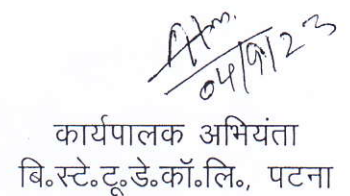 04/9/23
कार्यपालक अभियंता
बि॰स्टे॰टू॰डे॰कॉ॰लि॰, पटना